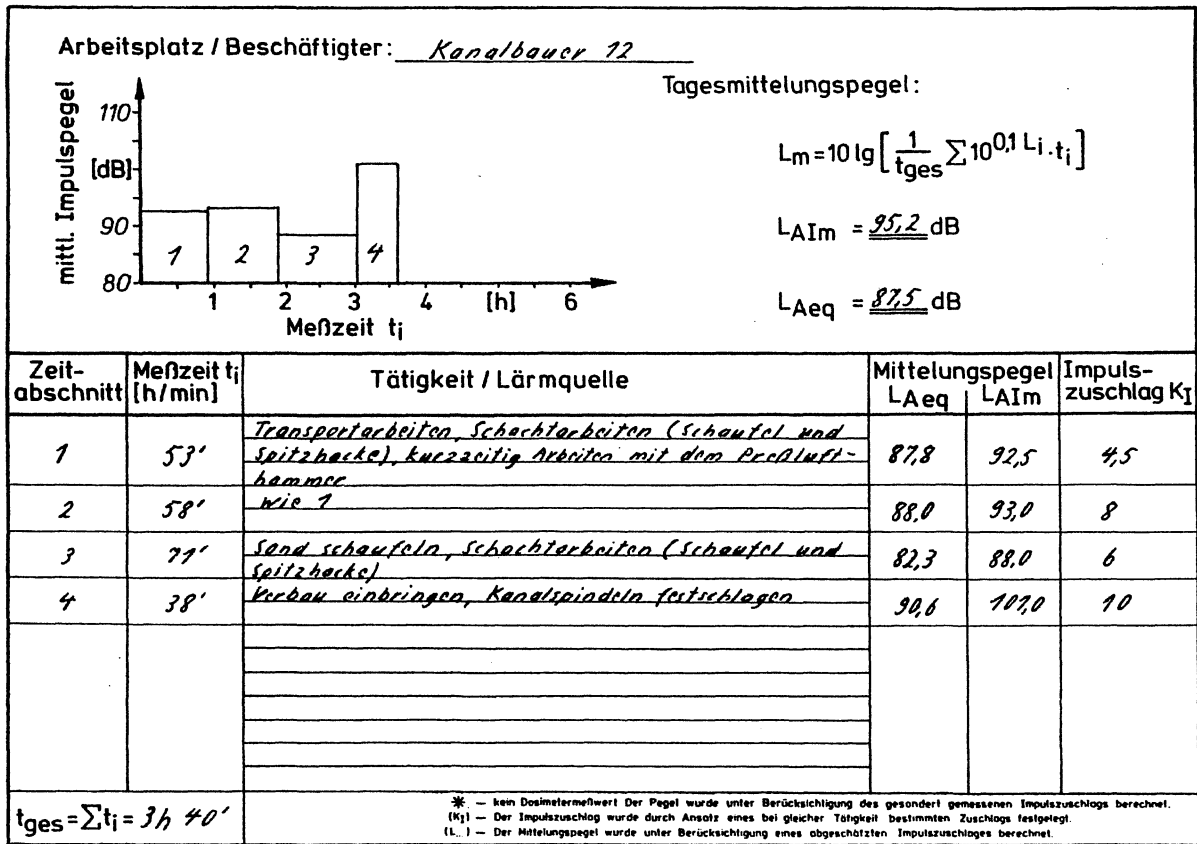 Arbeitsplatz / Beschäftigter: Kanalbauer 12
mittl. Impulspegel [dB]
110
90
80
1 2 3 4
1 2 3 4 [h] 6
Meßzeit ti
Tagesmittelungspegel:
Lm = 10 lg [ 1/tges ∑ 10^0,1 Li · ti ]
LAIm = 95,2 dB
LAeq = 87,5 dB
Zeit-abschnitt | Meßzeit ti [h/min] | Tätigkeit / Lärmquelle | Mittelungspegel LAeq LAIm | Impuls-zuschlag KI
1 53' Transportarbeiten, Schachtarbeiten (Schaufel und
Spitzhacke), kurzzeitig Arbeiten mit dem Preßluft- 87,8 92,5 4,5
hammer
2 58' wie 1 88,0 93,0 8
3 71' Sand schaufeln, Schachtarbeiten (Schaufel und 82,3 88,0 6
Spitzhacke)
4 38' Verbau einbringen, Kanalspindeln festschlagen 90,6 101,0 10
tges = ∑ti = 3h 40'
* – kein Dosimetermeßwert Der Pegel wurde unter Berücksichtigung des gesondert gemessenen Impulszuschlags berechnet.
(KI) – Der Impulszuschlag wurde durch Ansatz eines bei gleicher Tätigkeit bestimmten Zuschlags festgelegt.
(L...) – Der Mittelungspegel wurde unter Berücksichtigung eines abgeschätzten Impulszuschlages berechnet.